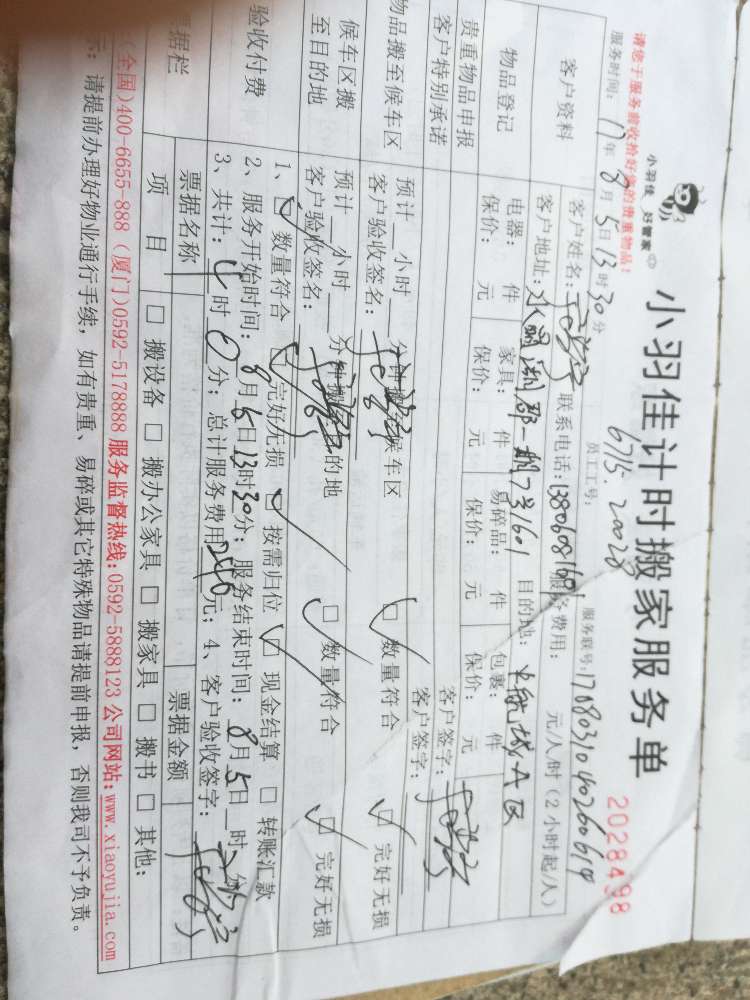 小羽佳 好管家
小羽佳计时搬家服务单
2028498
请您于服务前收拾好您的贵重物品!
员工工号: 6715.20028
服务时间: 17年8月5日13时30分
服务联号:
客户资料
客户姓名:
联系电话:
服务费用: 元/人/时(2小时起/人)
客户地址:
目的地:
物品登记
电器: 件 家具: 件 易碎品: 件 包裹: 件
保价: 元 保价: 元 保价: 元 保价: 元
贵重物品申报 客户签字:
客户特别承诺 客户签字:
物品搬至候车区
预计 小时 分钟搬至候车区 □ 数量符合 □ 完好无损
客户验收签名:
候车区搬至目的地
预计 小时 分钟搬至目的地 □ 数量符合 □ 完好无损
客户验收签名:
验收付费
1、□ 数量符合 □ 完好无损 □ 按需归位 □ 现金结算 □ 转账汇款
2、服务开始时间: 8月5日13时30分; 服务结束时间: 8月5日 时 分
3、共计: 4时0分; 总计服务费用 240元; 4、客户验收签字:
票据栏
票据名称 票据金额
项 目 □ 搬设备 □ 搬办公家具 □ 搬家具 □ 搬书 □ 其他:
(全国)400-6655-888 (厦门)0592-5178888 服务监督热线:0592-5888123 公司网站:www.xiaoyujia.com
示: 请提前办理好物业通行手续, 如有贵重、易碎或其它特殊物品请提前申报, 否则我司不予负责。